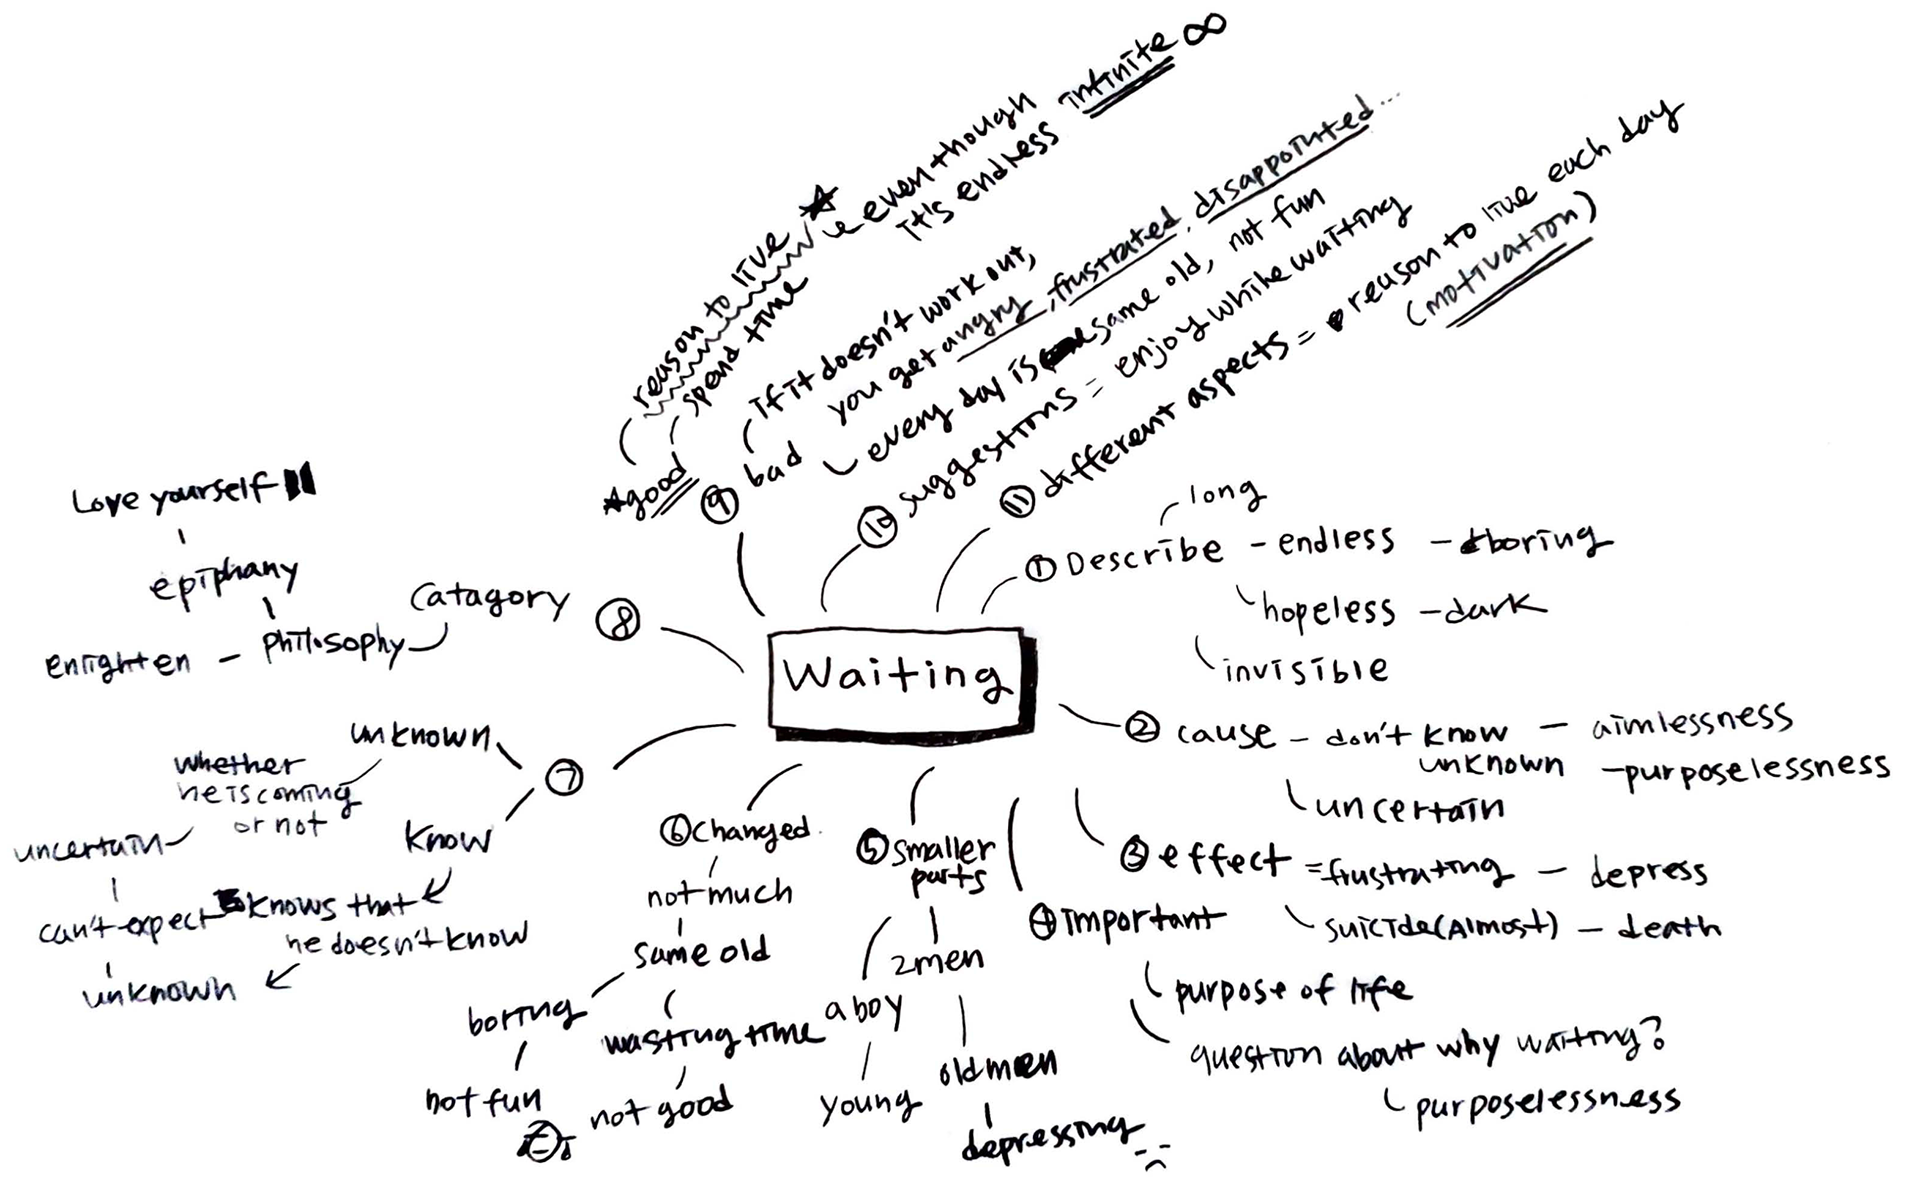 Waiting
① Describe - endless - boring
long
hopeless - dark
invisible
② cause - don't know - aimlessness
unknown - purposelessness
uncertain
③ effect = frustrating - depress
suicide(Almost) - death
④ important
purpose of life
question about why waiting?
purposelessness
⑤ smaller
parts
2men
a boy
young
old men
depressing
⑥ changed
not much
same old
boring
not fun
wasting time
not good
⑦
unknown
whether
he is coming
or not
uncertain
can't expect
unknown
know
knows that
he doesn't know
⑧
Catagory
philosophy - enlighten
epiphany
Love yourself
⑨
good
reason to live
spend time
even though
it's endless infinite ∞
bad
if it doesn't work out,
you get angry, frustrated, disappointed...
every day is same old, not fun
⑩ suggestions = enjoy while waiting
⑪ different aspects = reason to live each day
(motivation)